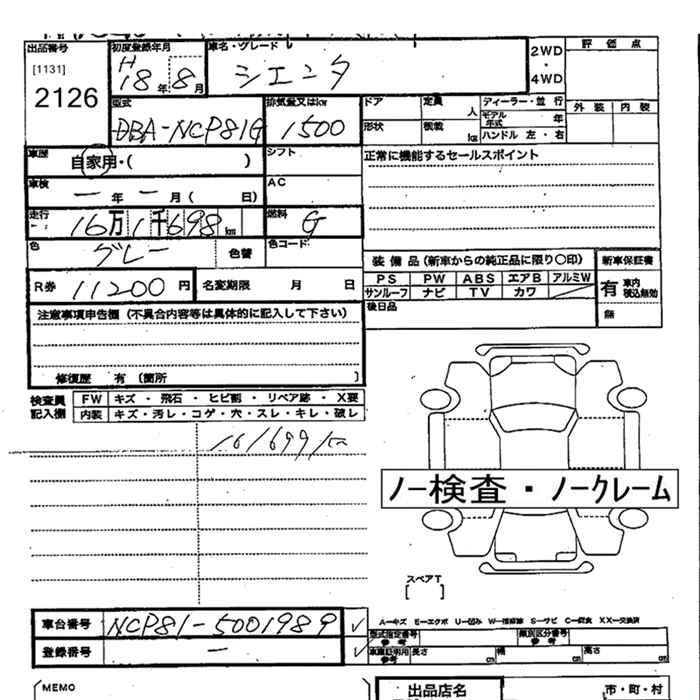 出品番号 初度登録年月 車名・グレード 2WD 評価点
[1131] H シエンタ ・
2126 18年8月 4WD
型式 排気量又はkw ドア 定員 人 ディーラー・並行 外装 内装
DBA-NCP81G 1500 モデル年式 年
形状 積載 kg ハンドル 左・右
車歴 自家用・( ) シフト 正常に機能するセールスポイント
車検 ー年ー月( 日) AC
走行 16万1千698km 燃料 G
色 グレー 色替 色コード
装備品(新車からの純正品に限り○印) 新車保証書
R券 11200円 名変期限 月 日 PS PW ABS エアB アルミW 有 車内積込無効
サンルーフ ナビ TV カワ
注意事項申告欄(不具合内容等は具体的に記入して下さい) 後日品 無
修復歴 有(箇所 )
検査員記入欄 FW キズ・飛石・ヒビ割・リペア跡・X要
内装 キズ・汚レ・コゲ・穴・スレ・キレ・破レ
161699km
ノー検査・ノークレーム
スペアT
[ ]
車台番号 NCP81-5001989 ✓ A-キズ E-エクボ U-凹み W-補修跡 S-サビ C-腐食 XX-交換済
型式指定番号 参考 類別区分番号 参考
登録番号 ー ✓ 車庫証明用 参考 長さ cm 幅 cm 高さ cm
MEMO 出品店名 市・町・村